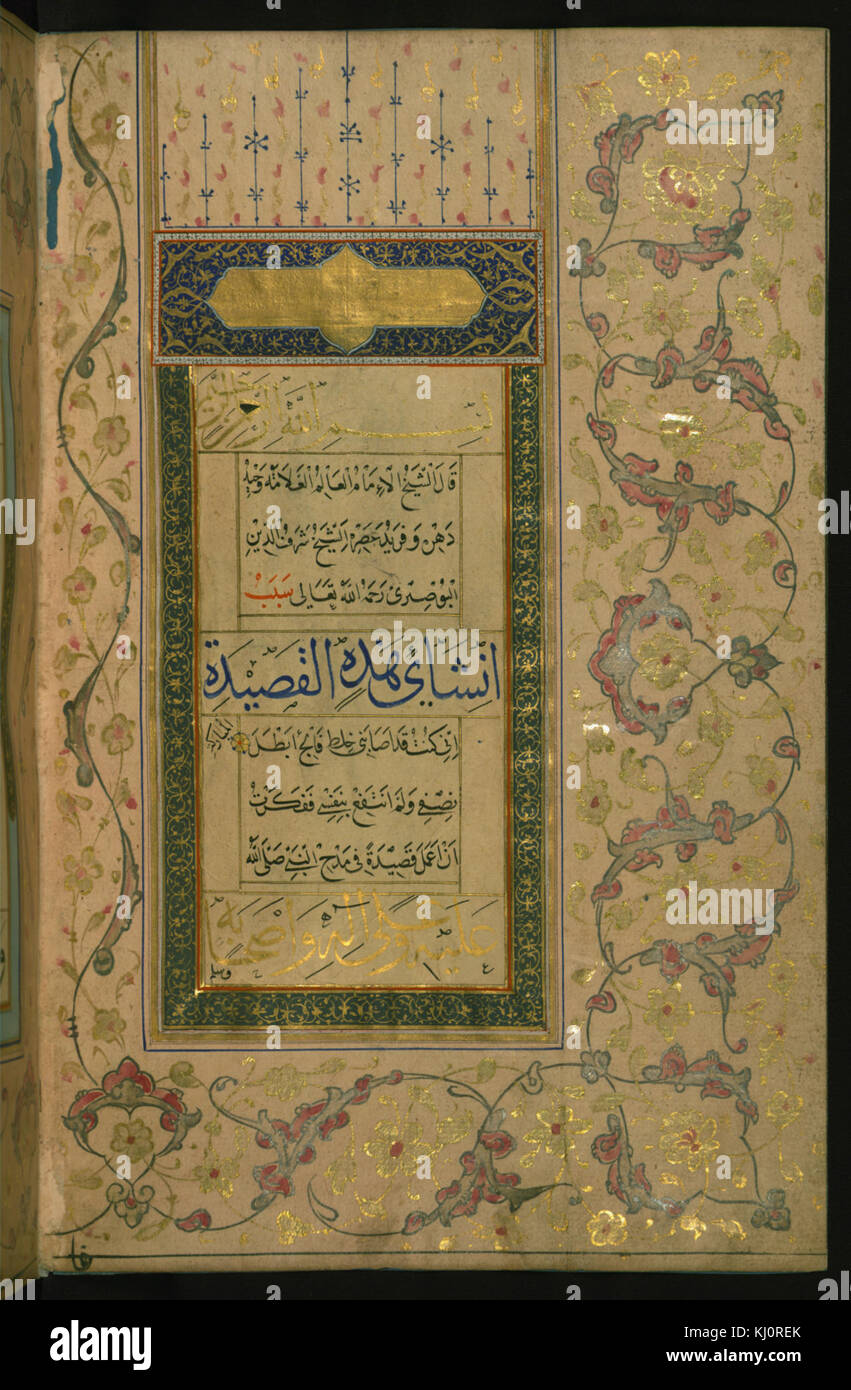 بسم الله الرحمن الرحيم
قال الشيخ الإمام العالم العلامة وحيد
دهره وفريد عصره الشيخ شرف الدين
البوصيري رحمه الله تعالى سبب
انشائي بهذه القصيدة
اني كنت قد اصابني خلط فالج ابطل
نصفي ولم انتفع بنفسي ففكرت
ان اعمل قصيدة في مدح النبي صلى الله
عليه وعلى اله واصحابه
وسلم
alamy
Image ID: KJ0REK
www.alamy.com